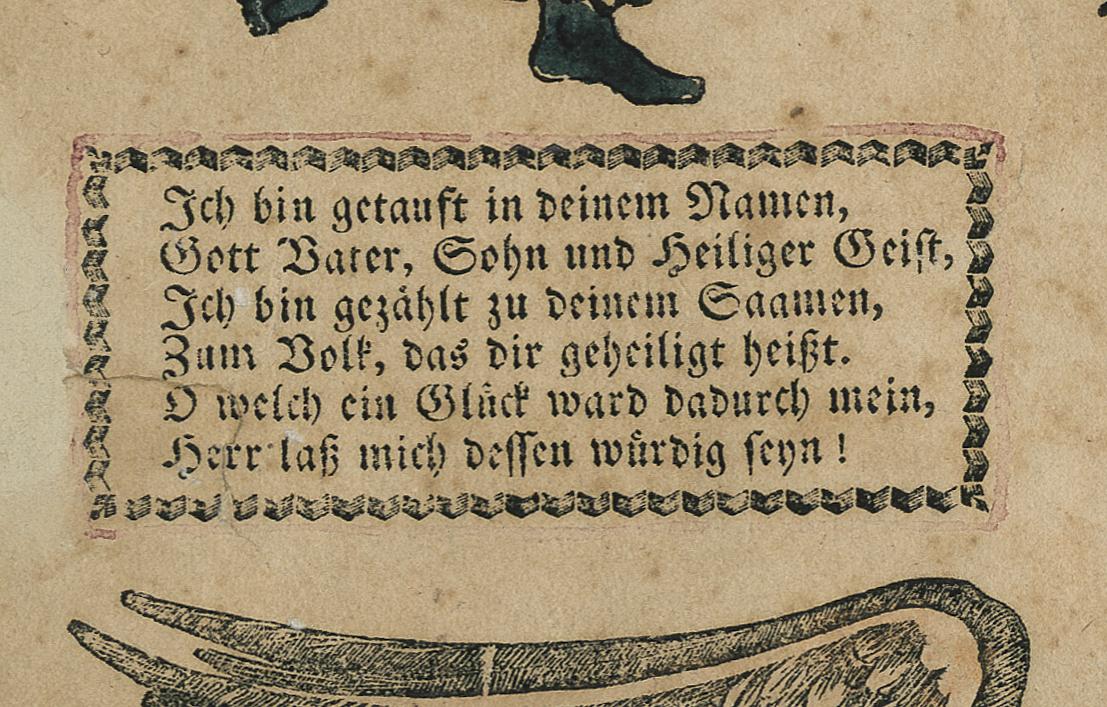 Ich bin getauft in deinem Namen,
Gott Vater, Sohn und Heiliger Geist,
Ich bin gezählt zu deinem Saamen,
Zum Volk, das dir geheiligt heißt.
O welch ein Glück ward dadurch mein,
Herr laß mich dessen würdig seyn!